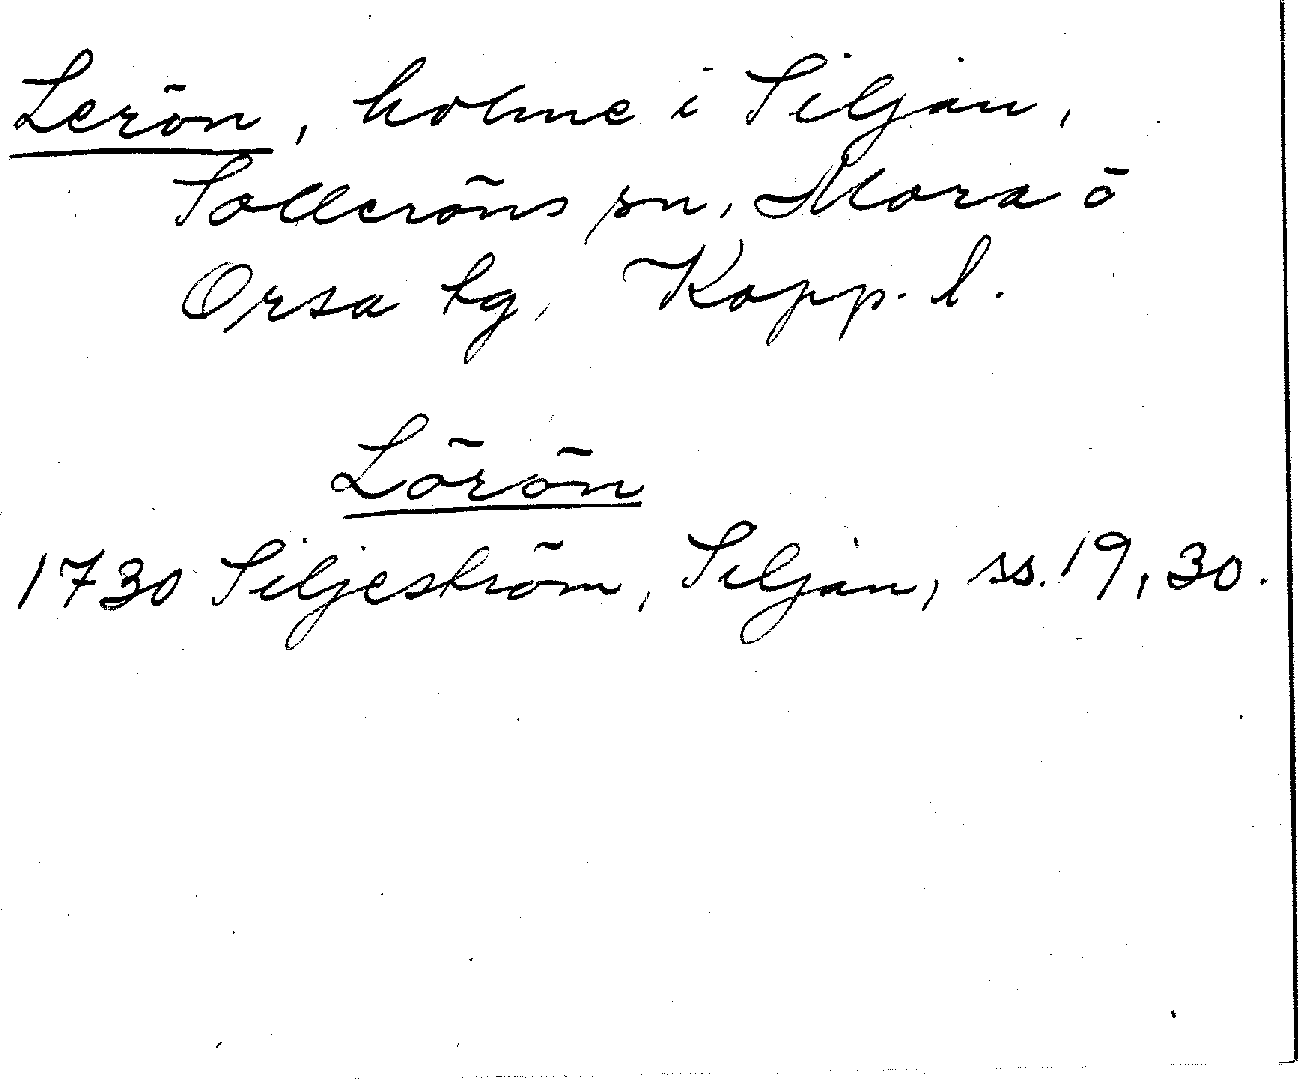 Lerön, holme i Siljan,
Solleröns sn, Mora o
Orsa tg, Kopp. l.
Lörön
1730 Siljeström, Siljan, ss. 19, 30.